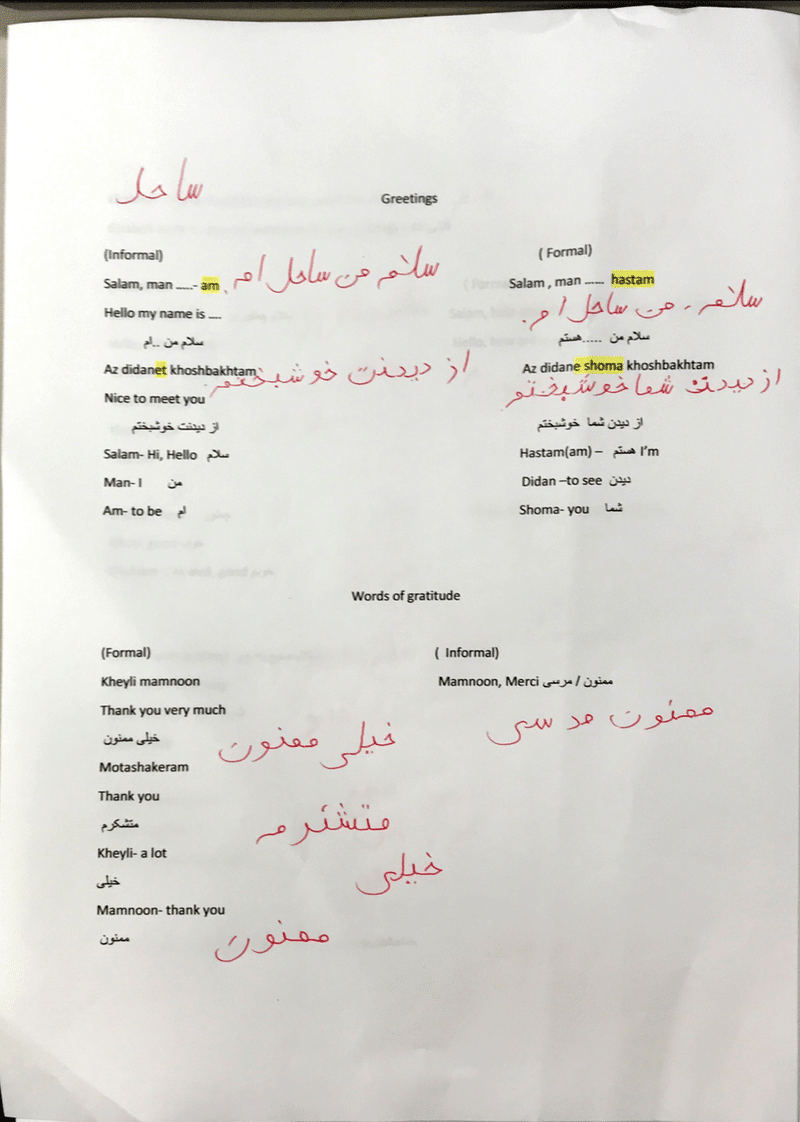 ساحل
Greetings
(Informal)
Salam, man .....- am
سلام من ساحل ام
Hello my name is ....
سلام من ..ام
Az didanet khoshbakhtam
از دیدنت خوشبختم
Nice to meet you
از دیدنت خوشبختم
Salam- Hi, Hello سلام
Man- I من
Am- to be ام
( Formal)
Salam , man ...... hastam
سلام . من ساحل ام .
سلام من .....هستم
Az didane shoma khoshbakhtam
از دیدن شما خوشبختم
از دیدن شما خوشبختم
Hastam(am) – هستم I'm
Didan –to see دیدن
Shoma- you شما
Words of gratitude
(Formal)
Kheyli mamnoon
Thank you very much
خیلی ممنون
خیلی ممنون
Motashakeram
Thank you
متشکرم
Kheyli- a lot
خیلی
خیلی
Mamnoon- thank you
ممنون
ممنون
( Informal)
Mamnoon, Merci ممنون / مرسی
ممنون مرسی